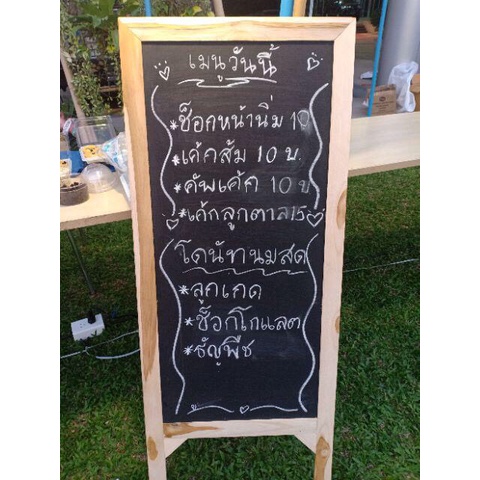 เมนูวันนี้
*ช็อกหน้านิ่ม 10
*เค้กส้ม 10 บ.
*คัพเค้ก 10 บ
*เค้กลูกตาล 15
โดนัทนมสด
*ลูกเกด
*ช็อกโกแลต
*ธัญพืช